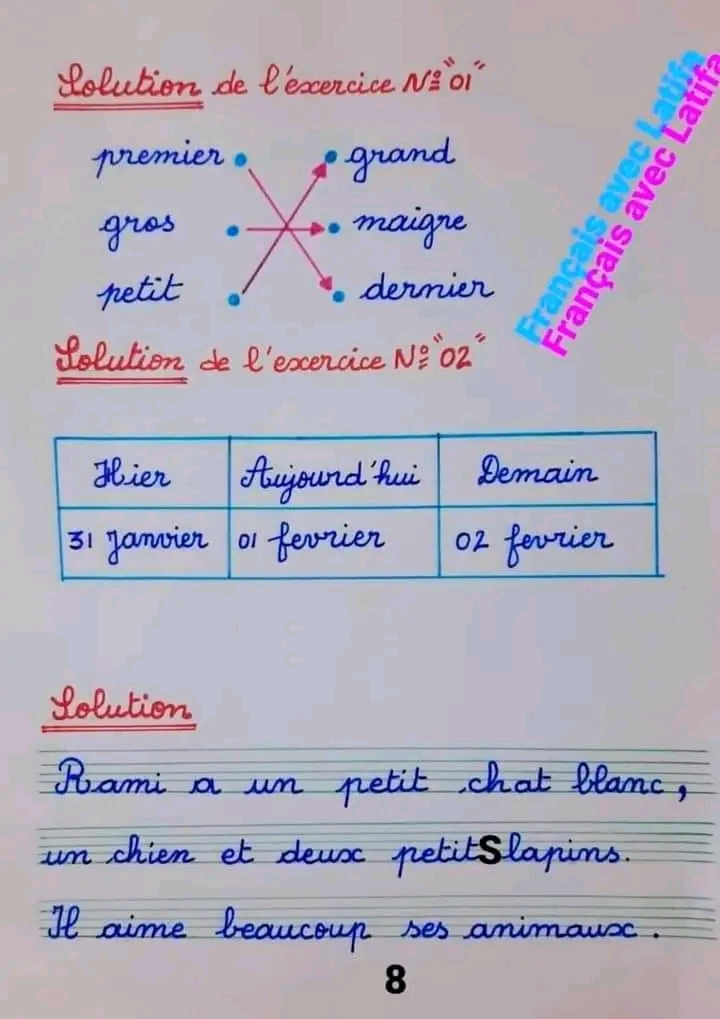 Solution de l'éxercice Nº "01"
premier grand
gros maigre
petit dernier
Français avec Latifa
Français avec Latifa
Solution de l'exercice Nº "02"
Hier Aujourd'hui Demain
31 Janvier 01 fevrier 02 fevrier
Solution
Rami a un petit chat blanc,
un chien et deux petitS lapins.
Il aime beaucoup ses animaux.
8